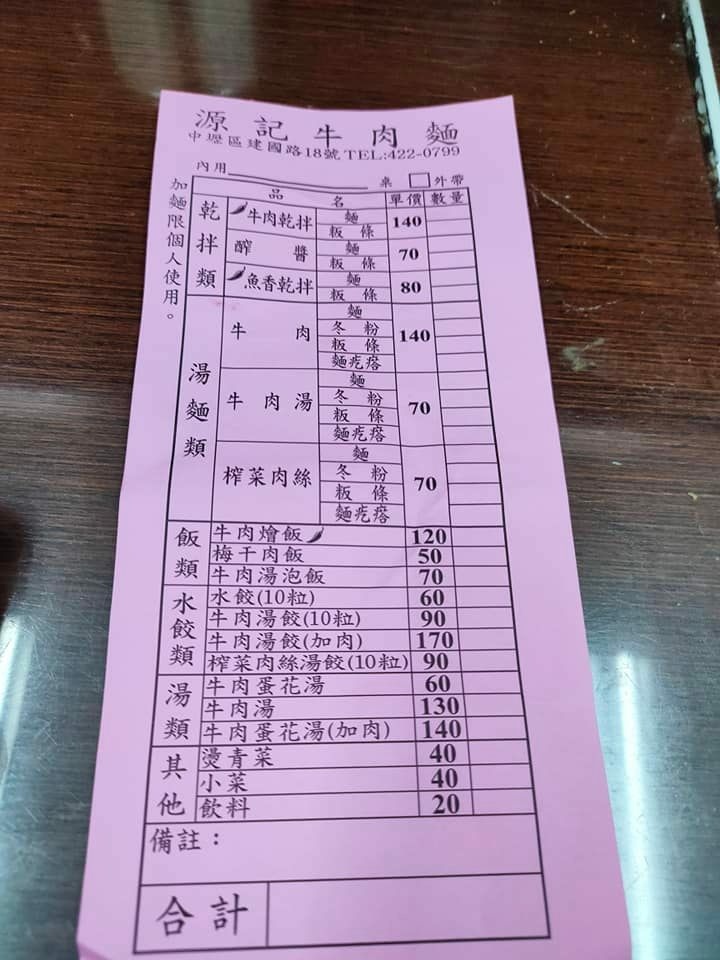 源記牛肉麵
中壢區建國路18號TEL:422-0799
內用 桌 □外帶
加麵限個人使用。
品名 單價 數量
乾拌類
牛肉乾拌 麵 140
粄條
醡醬 麵 70
粄條
魚香乾拌 麵 80
粄條
湯麵類
牛肉 麵 140
冬粉
粄條
麵疙瘩
牛肉湯 麵 70
冬粉
粄條
麵疙瘩
榨菜肉絲 麵 70
冬粉
粄條
麵疙瘩
飯類
牛肉燴飯 120
梅干肉飯 50
牛肉湯泡飯 70
水餃類
水餃(10粒) 60
牛肉湯餃(10粒) 90
牛肉湯餃(加肉) 170
榨菜肉絲湯餃(10粒) 90
湯類
牛肉蛋花湯 60
牛肉湯 130
牛肉蛋花湯(加肉) 140
其他
燙青菜 40
小菜 40
飲料 20
備註：
合計